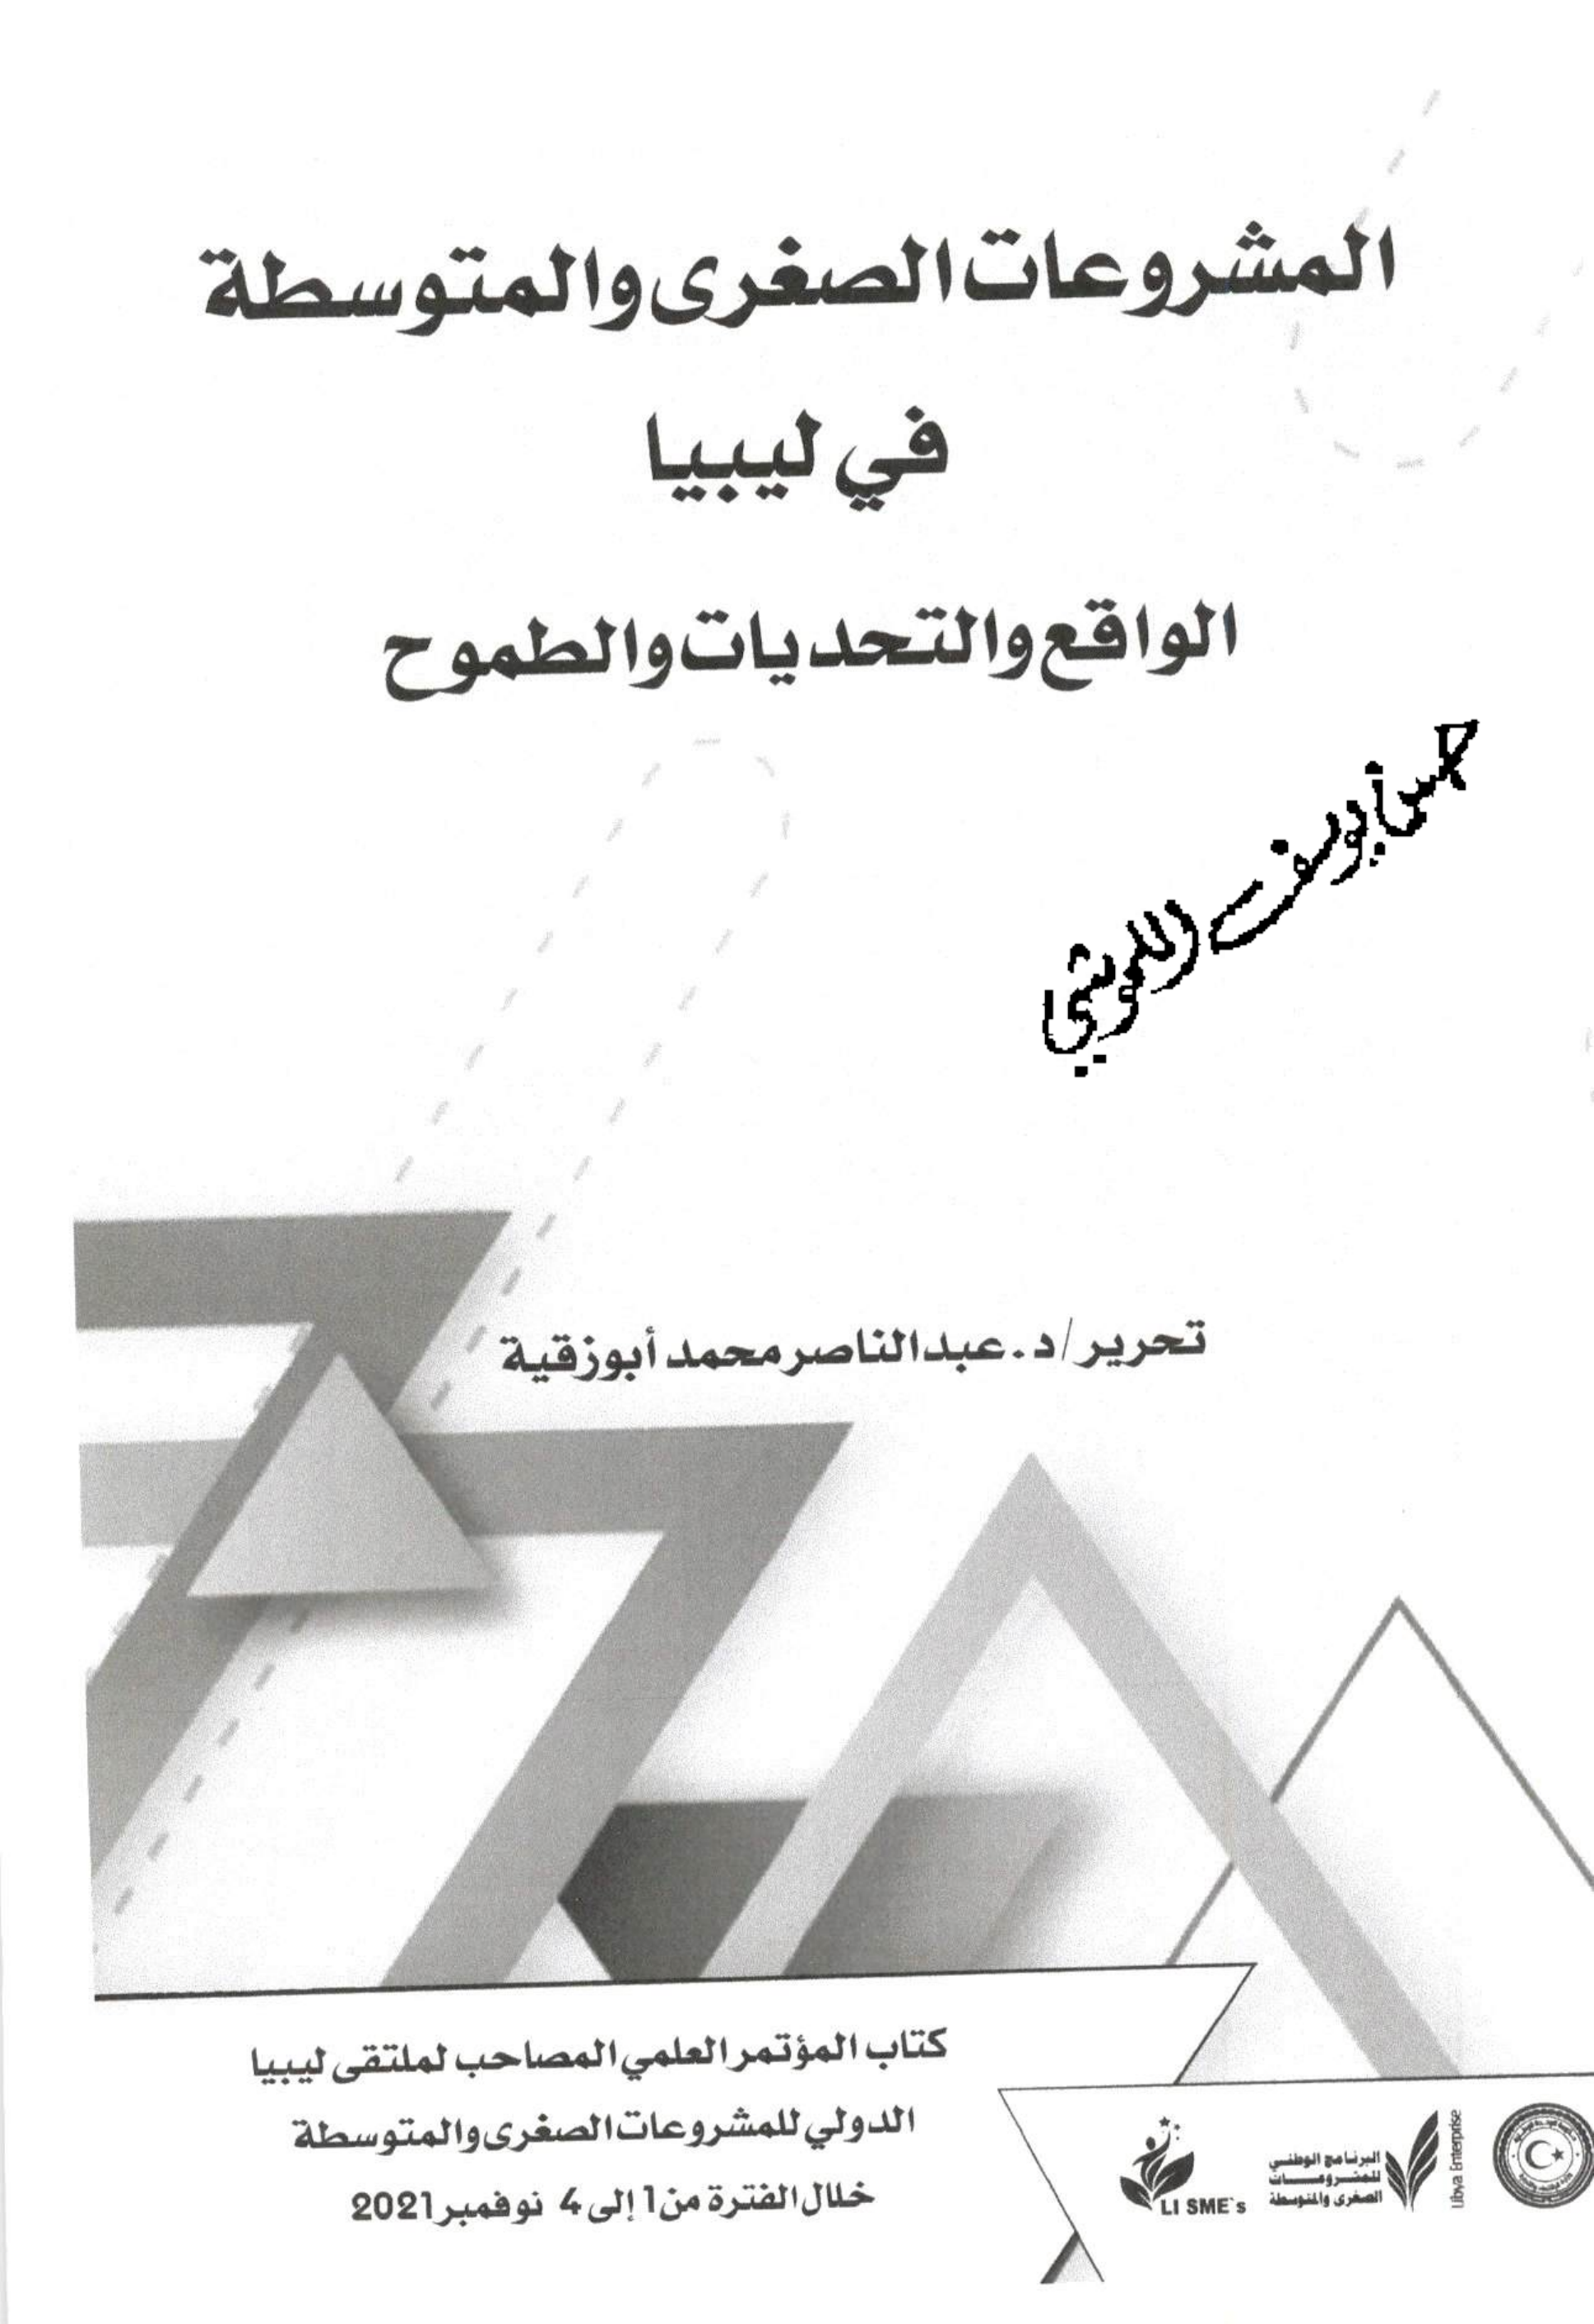 المشروعات الصغرى والمتوسطة
في ليبيا
الواقع والتحديات والطموح
تحرير/د. عبدالناصر محمد أبوزقية
كتاب المؤتمر العلمي المصاحب لملتقى ليبيا
الدولي للمشروعات الصغرى والمتوسطة
خلال الفترة من 1 إلى 4 نوفمبر 2021
LI SME`s
البرنامج الوطني
للمشروعات
الصغرى والمتوسطة
Libya Enterprise